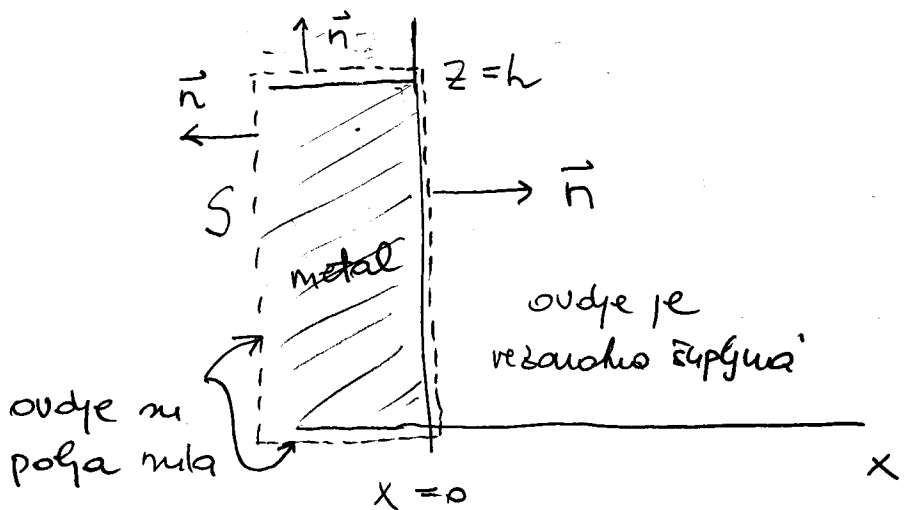 n⃗
z = h
n⃗
n⃗
S
metal
ovdje je
rezonatna šupljina
ovdje su
polja nula
x
x = 0